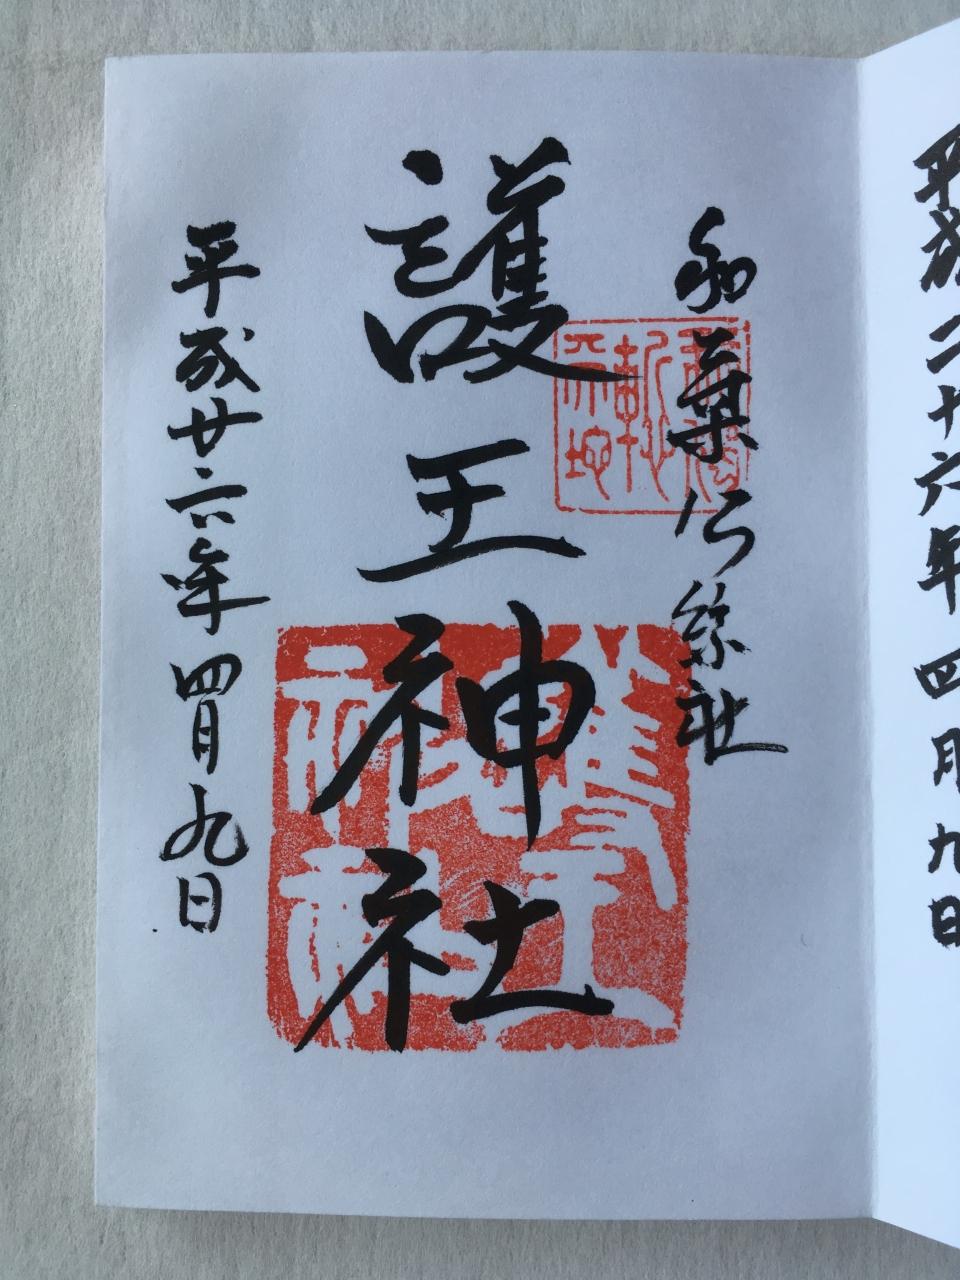 平成二十六年四月九日
和氣公綜社
護王神社
平成廿六年四月九日
護王神社